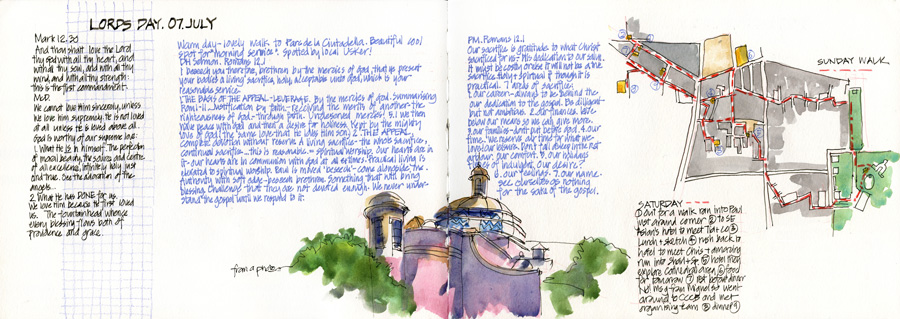 LORDS DAY. 07. JULY
Mark 12.30
And thou shalt love the Lord
thy God with all thy heart, and
with all thy soul, and with all thy
mind, and with all thy strength:
this is the first commandment.
McD.
We cannot love him sincerely, unless
we love him supremely. He is not loved
at all unless he is loved above all.
God is worthy of our supreme love:
1. What He is in Himself. The perfection
of moral beauty, the source and centre
of all excellence, infinitely holy, just
and true. See the adoration of the
angels.
2. What He has DONE for us.
We love Him because He first loved
us. The fountainhead whence
every blessing flows both of
providence and grace.
Warm day - lovely walk to Parc de la Ciutadella. Beautiful cool
spot for "morning service". Spotted by local Usker!
DH Sermon. Romans 12.1
I beseech you therefore, brethren, by the mercies of God, that ye present
your bodies a living sacrifice, holy, acceptable unto God, which is your
reasonable service.
1. THE BASIS OF THE APPEAL - LEVERAGE. By the mercies of God. Summarising
Rom 1-11. Justification by faith - receiving the merit of another - the
righteousness of God - through faith. Undeserved mercies. 5.1 we then
have peace with God and then a desire for holiness. Kept by the mighty
love of God (the same love that He has for His son). 2. THE APPEAL.
Complete devotion without reserve. A living sacrifice - the whole sacrifice,
continual sacrifice... this is reasonable = spiritual worship. Our hearts are in
it - our hearts are in communion with God at all times. Practical living is
elevated to spiritual worship. Paul is mild: "beseech" - come alongside the
authority with soft edge - reason brethren. Something that will bring
blessing. Challenge that they are not devoted enough. We never under-
stand the gospel until we respond to it.
PM. Romans 12.1
Our sacrifice is gratitude to what Christ
sacrificed for us. His dedication to our salv.
It must be costly or else it will not be a live
sacrifice. Holy + spiritual thought is
practical. 7 areas of sacrifice,
1. Our career - aiming to be behind the
our dedication to the gospel. Be diligent
but not ambitious. 2. Our financial level -
below our means so we can give more.
3. our families - don't put before God. 4. our
time. We reserve our time for what we
love/our leisure. Don't fall asleep in the hot
ardour, our comfort. 5. our holidays
of indulgent. Our desire?
6. our feelings. 7. our name -
see ourselves as nothing
for the sake of the gospel.
from a photo
SUNDAY WALK
SATURDAY
① out for a walk ran into Paul
just around corner ② to SE
Asian's hotel to meet Tia + co ③
Lunch + sketch ④ rush back to
hotel to meet Chris + amazing
run into Shari + sp ⑤ hotel then
explore Cathedral area ⑥ food
for tomorrow ⑦ rest before dinner
No. Msg from Miguel so went
around to CCCB and met
organising team ⑧ dinner